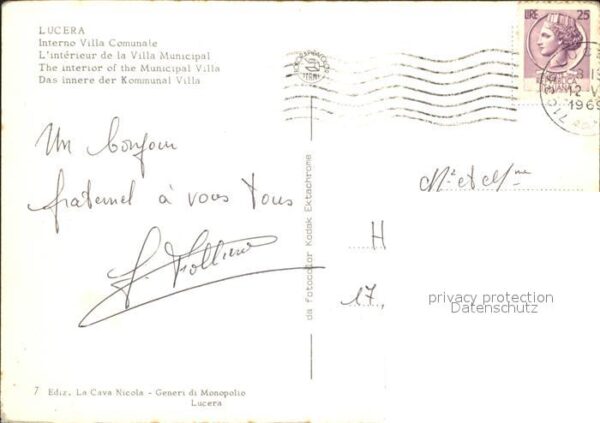 LUCERA
Interno Villa Comunale
L'intérieur de la Villa Municipal
The interior of the Municipal Villa
Das innere der Kommunal Villa
LIRE 25
1969
Un bonjour
fraternel à vous tous
Mr et Mme
H
17,
da fotocolor Kodak Ektachrome
privacy protection
Datenschutz
7 Ediz. La Cava Nicola - Generi di Monopolio
Lucera